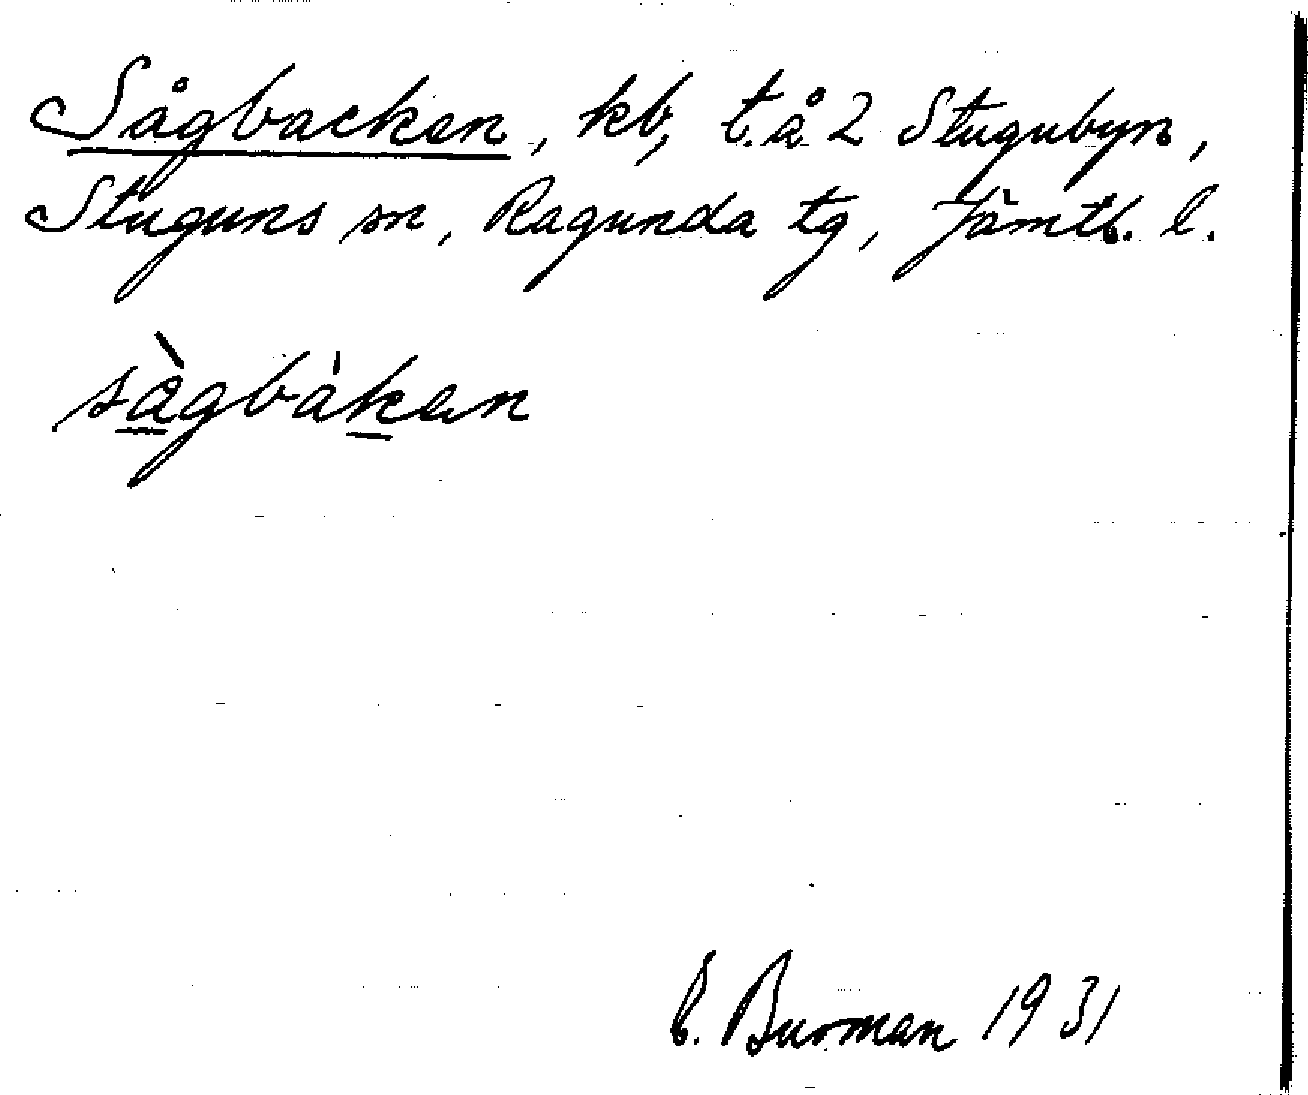 Sågbacken, kb, t. å 2 Stugubyn,
Stuguns sn, Ragunda tg, Jämtl. l.
sàgbàkan
E. Burman 1931